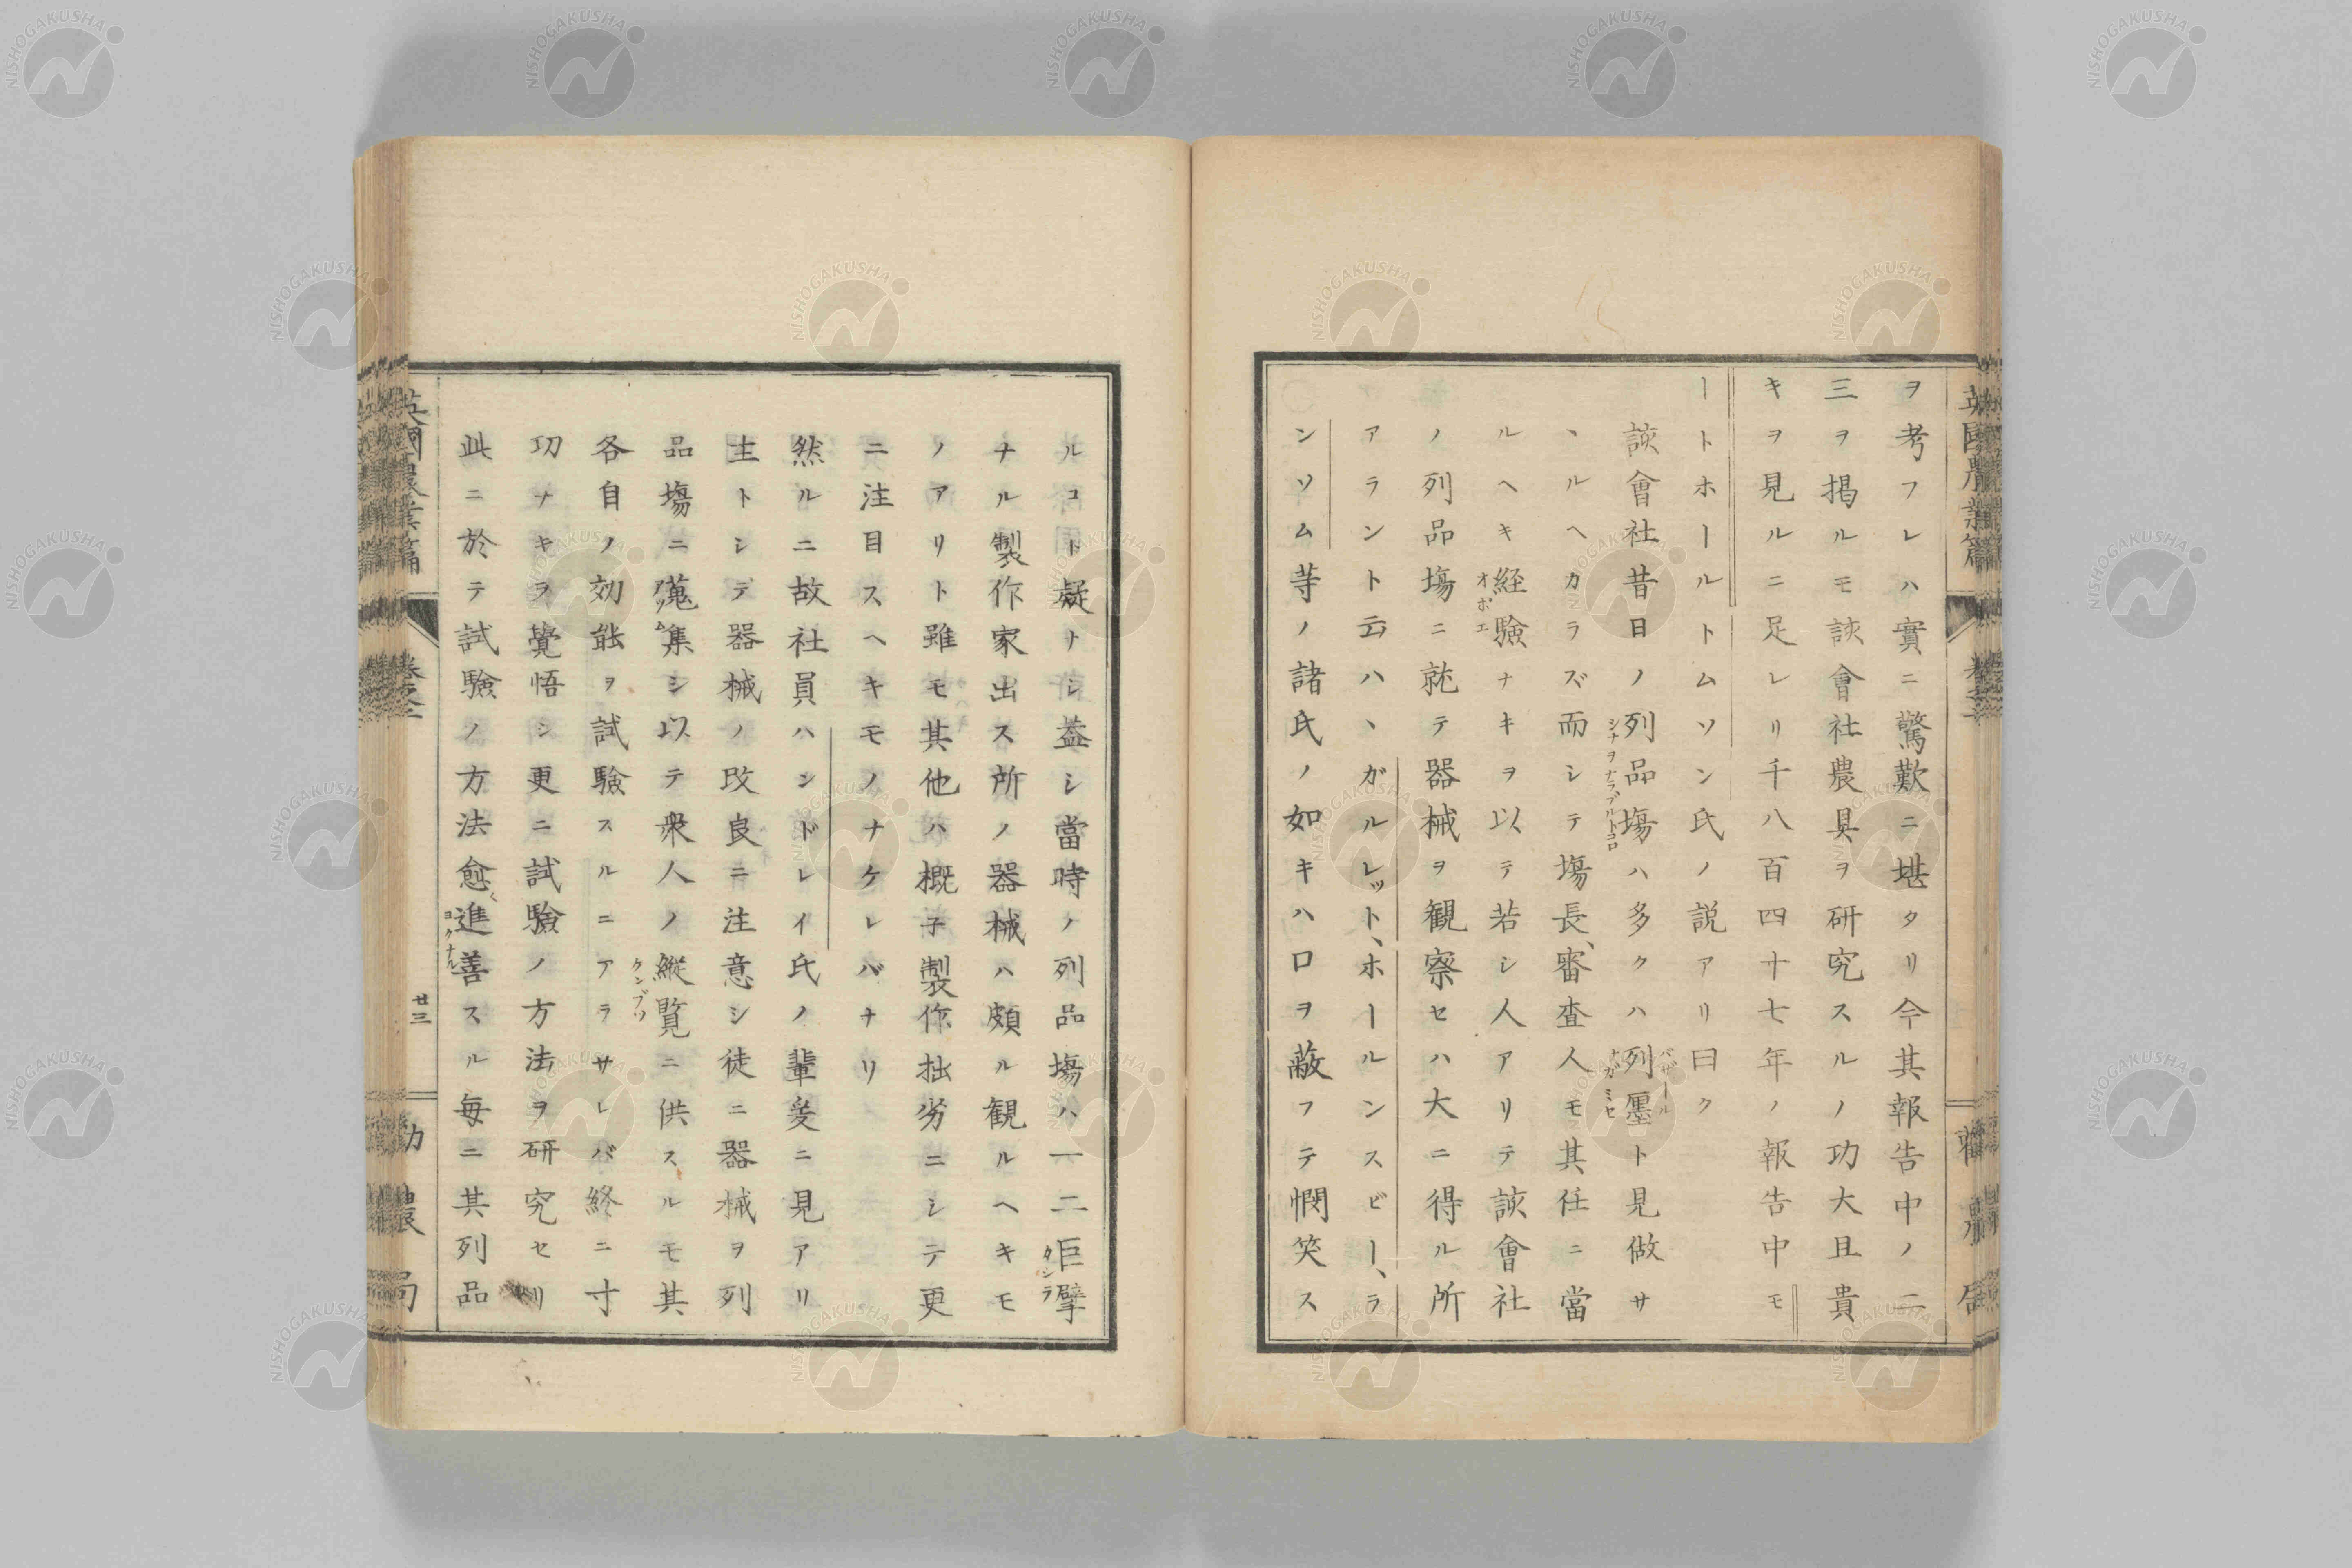 ヲ考フレハ實ニ驚歎ニ堪タリ今其報告中ノ二
三ヲ掲ルモ該會社農具ヲ研究スルノ功大且貴
キヲ見ルニ足レリ千八百四十七年ノ報告中モ
ートホールトムソン氏ノ説アリ曰ク
該會社昔日ノ列品塲ハ多クハ列廛ト見做サ
シナヲナラブルトコロ
バザール
ナガミセ
ヽルヘカラズ而シテ塲長、審査人モ其任ニ當
ルヘキ経験ナキヲ以テ若シ人アリテ該會社
オボエ
ノ列品塲ニ就テ器械ヲ観察セハ大ニ得ル所
アラント云ハヽガルレット、ホールンスビー、ラ
ンソム等ノ諸氏ノ如キハ口ヲ蔽フテ憫笑ス
英國農業篇
卷之二
勸農局
ルコト疑ナシ蓋シ當時ノ列品塲ハ一二巨擘
タシラ
ナル製作家出ス所ノ器械ハ頗ル観ルヘキモ
ノアリト雖モ其他ハ概子製作拙劣ニシテ更
ニ注目スヘキモノナケレバナリ
然ルニ故社員ハンドレイ氏ノ輩爰ニ見アリ
主トシテ器械ノ改良ニ注意シ徒ニ器械ヲ列
品塲ニ蒐集シ以テ衆人ノ縦覧ニ供スルモ其
アツム
ケンブツ
各自ノ効能ヲ試驗スルニアラサレバ終ニ寸
功ナキヲ覺悟シ更ニ試驗ノ方法ヲ研究セリ
此ニ於テ試驗ノ方法愈〻進善スル毎ニ其列品
ヨクナル
英國農業篇
卷之二
廿三
勸農局
NISHOGAKUSHA